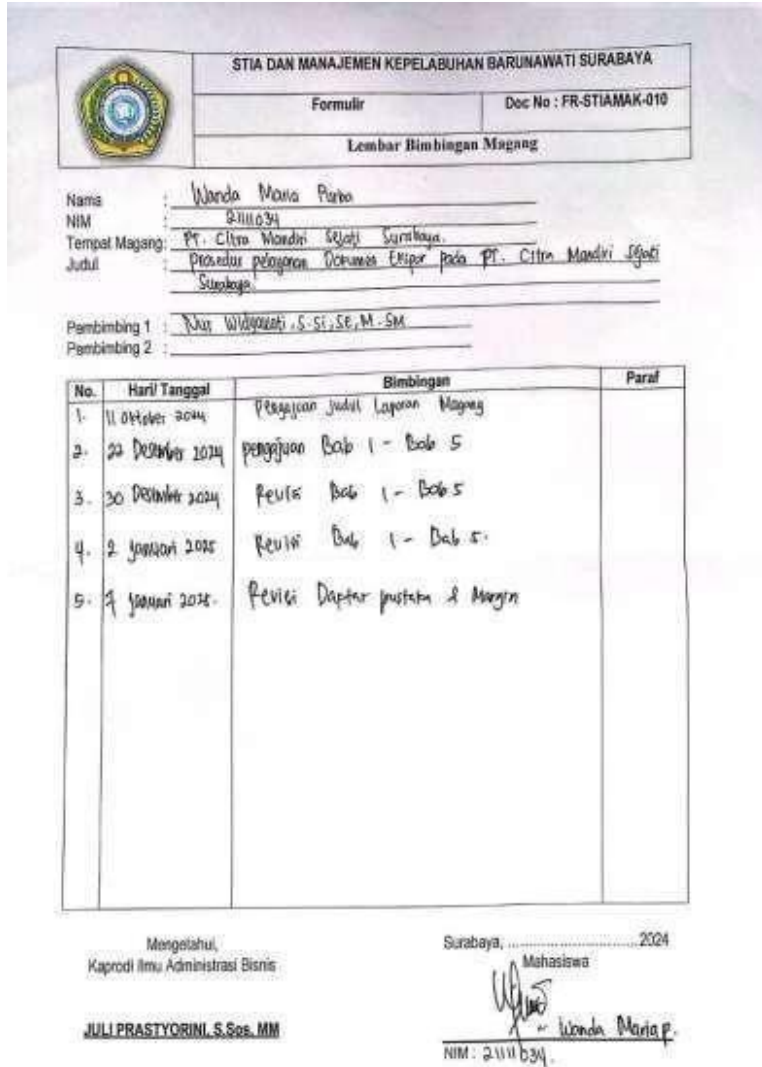 STIA DAN MANAJEMEN KEPELABUHAN BARUNAWATI SURABAYA
Formulir Doc No : FR-STIAMAK-010
Lembar Bimbingan Magang
Nama : Wanda Maria Purba
NIM : 21111034
Tempat Magang: PT. Citra Mandiri Sejati Surabaya.
Judul : Prosedur pelayanan Dokumen Ekspor pada PT. Citra Mandiri Sejati
Surabaya.
Pembimbing 1 : Nur Widyawati, S.Si, SE, M.SM
Pembimbing 2 :
No. Hari/ Tanggal Bimbingan Paraf
1. 11 Oktober 2024 Pengajuan judul Laporan Magang
2. 22 Desember 2024 pengajuan Bab 1 - Bab 5
3. 30 Desember 2024 Revisi Bab 1 - Bab 5
4. 2 januari 2025 Revisi Bab 1 - Bab 5.
5. 7 januari 2025. Revisi Daptar pustaka & Margin
Mengetahui,
Kaprodi Ilmu Administrasi Bisnis
JULI PRASTYORINI, S.Sos, MM
Surabaya, ................................2024
Mahasiswa
Wanda Maria P.
NIM : 21111034.